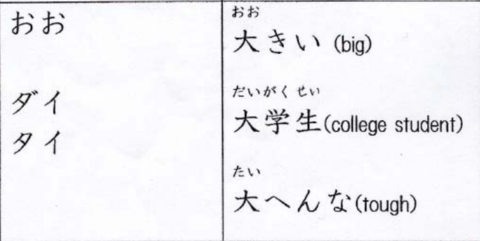 おお
ダイ
タイ
おお
大きい (big)
だいがくせい
大学生(college student)
たい
大へんな(tough)